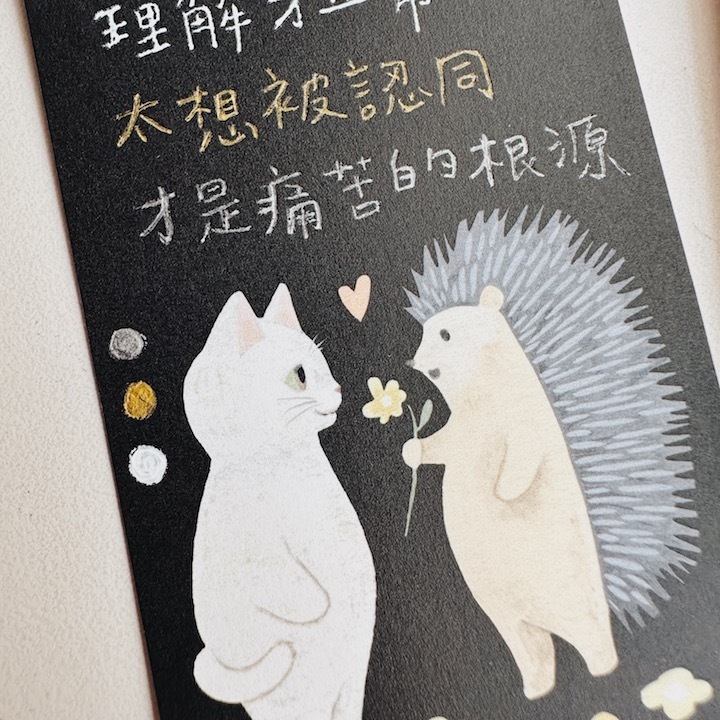 理解
太想被認同
才是痛苦的根源